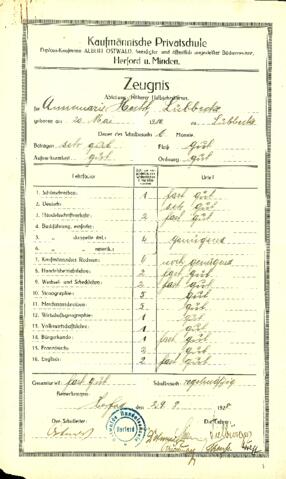 Kaufmännische Privatschule
Diplom-Kaufmann ALBERT OSTWALD, beeidigter und öffentlich angestellter Bücherrevisor
Herford u. Minden.
Zeugnis
Abteilung: Höherer Halbjahreskursus
für Annemarie Lübbecke
geboren am 20. Mai in Lübbecke
Dauer des Schulbesuchs 6 Monate
Betragen sehr gut Fleiß gut
Aufmerksamkeit gut Ordnung gut
Lehrfächer
1. Schönschreiben 1 fast gut
2. Deutsch sehr gut
3. Handelsschriftverkehr 2 fast gut
4. Buchführung, einfache
5. " doppelte 4 genügend
6. " amerik.
7. Kaufmännisches Rechnen 6 noch genügend
8. Handelsbetriebslehre 2 fast gut
9. Wechsel- und Schecklehre 2 fast gut
10. Stenographie 5 gut
11. Maschinenschreiben 5 gut
12. Wirtschaftsgeographie 1 gut
13. Volkswirtschaftslehre 1 fast gut
14. Bürgerkunde 1 fast gut
15. Französisch 2 gut
16. Englisch 2 fast gut
Gesamturteil fast gut Schulbesuch regelmäßig
Bemerkungen
Herford 29. 9. 1928
Der Schulleiter Die Lehrer
Ostwald
Herford